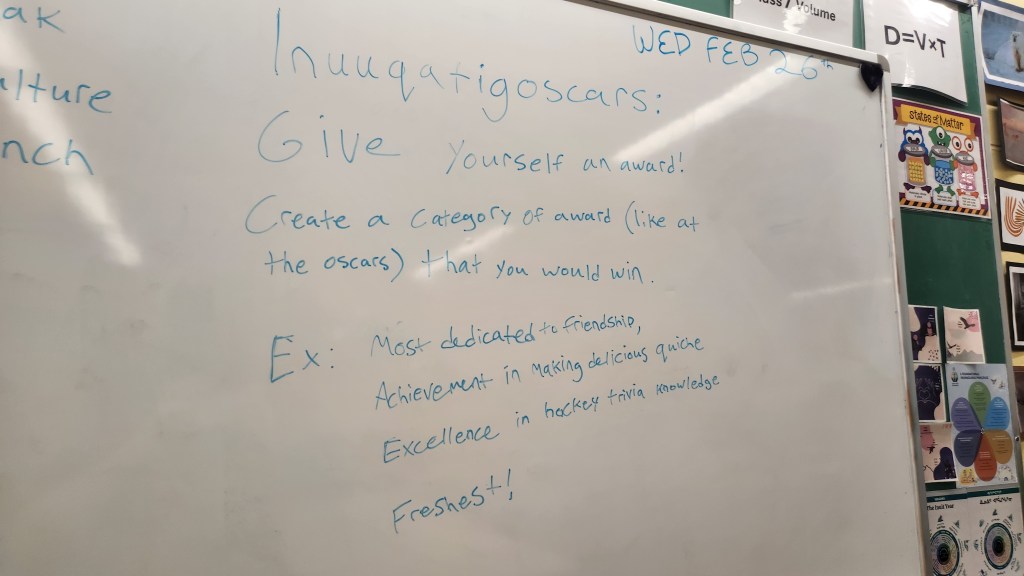 ak
ulture
nch
WED FEB 26th
Inuuqatigoscars:
Give yourself an award!
Create a category of award (like at
the oscars) that you would win.
Ex: Most dedicated to friendship,
Achievement in making delicious quiche
Excellence in hockey trivia knowledge
Freshest!
Mass / Volume
D=V×T
States of Matter
The Inuit Year